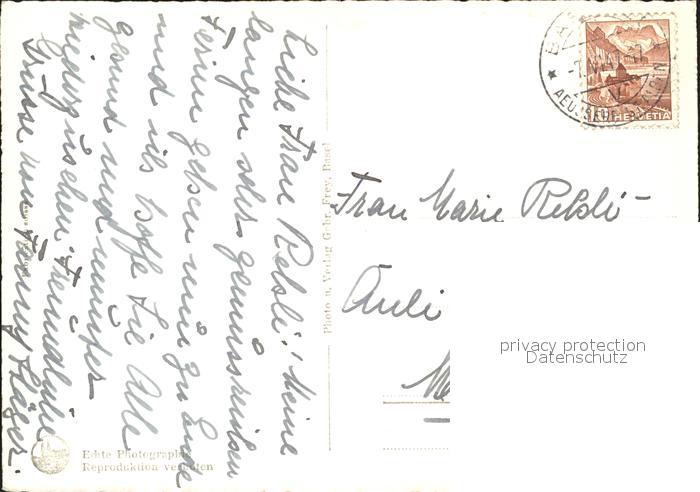 Liebe Frau Rebsli! Meine
langen sehr genussreichen
Ferien gehen nun zu Ende
und ich hoffe Sie Alle
gesund und munter
wiederzusehen. Freundliche
Grüsse von Fanny Häger.
Photo u. Verlag Gebr. Frey, Basel
Echte Photographie
Reproduktion verboten
HELVETIA
Frau Marie Rebsli-
Äuli
privacy protection
Datenschutz